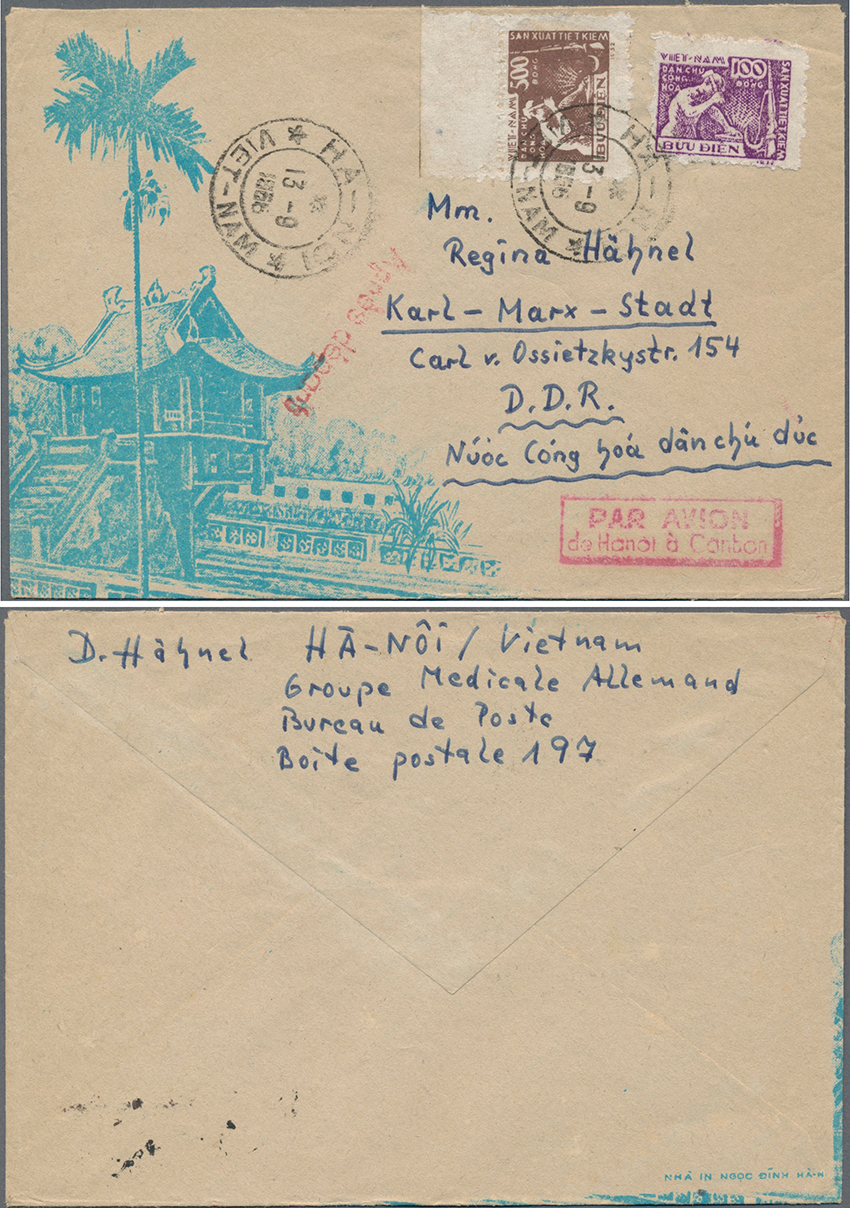 SẢN XUẤT TIẾT KIỆM
500
ĐỒNG
VIỆT-NAM
DÂN CHỦ
CỘNG
BƯU ĐIỆN
VIỆT-NAM
DÂN CHỦ
CỘNG
HÒA
100
ĐỒNG
SẢN XUẤT TIẾT KIỆM
BƯU ĐIỆN
HÀ-NỘI
VIỆT-NAM
13-9
HÀ-NỘI
VIỆT-NAM
13-9
Après départ
Mm.
Regina Hähnel
Karl-Marx-Stadt
Carl v. Ossietzkystr. 154
D.D.R.
Núóc Cóng hoá dân chú đúc
PAR AVION
de Hanoi à Canton
D. Hähnel HÀ-NÔI / Vietnam
Groupe Medicale Allemand
Bureau de Poste
Boîte postale 197
NHÀ IN NGỌC ĐĨNH HÀ-N